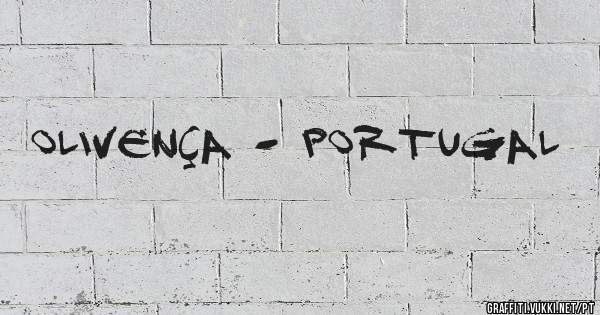 OLIVENÇA - PORTUGAL
GRAFFITI.VUKKI.NET/PT